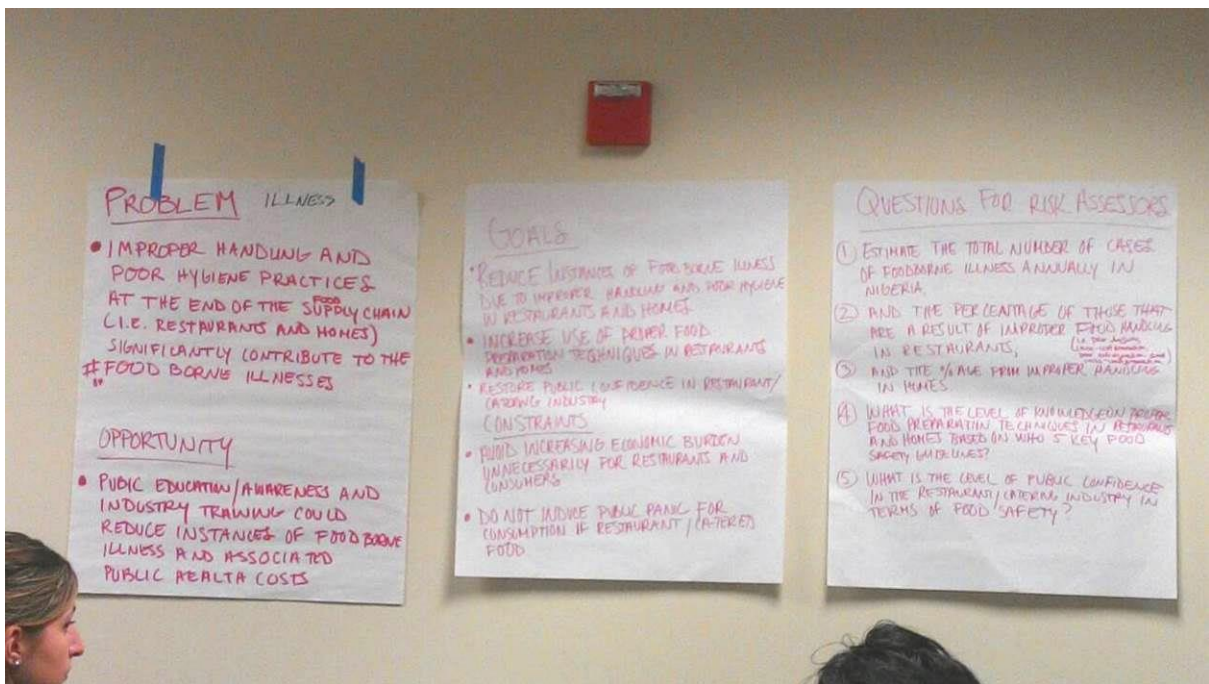 PROBLEM ILLNESS
• IMPROPER HANDLING AND
POOR HYGIENE PRACTICES
AT THE END OF THE FOOD SUPPLY CHAIN
(I.E. RESTAURANTS AND HOMES)
SIGNIFICANTLY CONTRIBUTE TO THE
# FOOD BORNE ILLNESSES
OPPORTUNITY
• PUBIC EDUCATION/AWARENESS AND
INDUSTRY TRAINING COULD
REDUCE INSTANCES OF FOOD BORNE
ILLNESS AND ASSOCIATED
PUBLIC HEALTH COSTS
GOALS
• REDUCE INSTANCES OF FOOD BORNE ILLNESS
DUE TO IMPROPER HANDLING AND POOR HYGIENE
IN RESTAURANTS AND HOMES
• INCREASE USE OF PROPER FOOD
PREPARATION TECHNIQUES IN RESTAURANTS
AND HOMES
• RESTORE PUBLIC CONFIDENCE IN RESTAURANT/
CATERING INDUSTRY
CONSTRAINTS
• AVOID INCREASING ECONOMIC BURDEN
UNNECESSARILY FOR RESTAURANTS AND
CONSUMERS
• DO NOT INDUCE PUBLIC PANIC FOR
CONSUMPTION IF RESTAURANT/CATERED
FOOD
QUESTIONS FOR RISK ASSESSORS
① ESTIMATE THE TOTAL NUMBER OF CASES
OF FOODBORNE ILLNESS ANNUALLY IN
NIGERIA.
② AND THE PERCENTAGE OF THOSE THAT
ARE A RESULT OF IMPROPER FOOD HANDLING
IN RESTAURANTS,
③ AND THE %AGE FROM IMPROPER HANDLING
IN HOMES
④ WHAT IS THE LEVEL OF KNOWLEDGE ON PROPER
FOOD PREPARATION TECHNIQUES IN RESTAURANTS
AND HOMES BASED ON WHO 5 KEY FOOD
SAFETY GUIDELINES?
⑤ WHAT IS THE LEVEL OF PUBLIC CONFIDENCE
IN THE RESTAURANT/CATERING INDUSTRY IN
TERMS OF FOOD SAFETY?